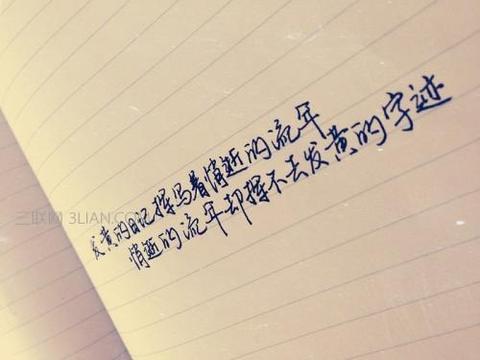 发黄的日记撰写着悄逝的流年
悄逝的流年却择不去发黄的字迹
三联网 3LIAN.COM